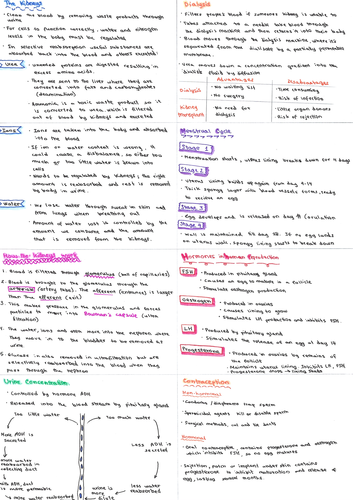 The Kidneys
• Clean the blood by removing waste products through urine.
• For cells to function correctly, water and nitrogen waste in the body must be regulated
• In selective reabsorption useful substances are absorbed back into the blood and others excreted.
Urea
• Unneeded proteins are digested resulting in excess amino acids.
• They are sent to the liver where they are converted into fats and carbohydrates (deamination)
• Ammonia is a toxic waste product so it is converted to urea, which is filtered out of blood by kidneys and excreted
Ions
• Ions are taken into the body and absorbed into the blood
• If ion or water content is wrong, it could cause a disbalance, so either too much or too little water is drawn into cells
• Needs to be regulated by kidneys, the right amount is reabsorbed and rest is removed by body in urine
Water
• We lose water through sweat in skin and from lungs when breathing out
• Amount of water lost is controlled by the amount we consume and the amount that is removed from the kidneys.
How the kidneys work
1. Blood is filtered through glomerulus (knot of capillaries)
2. Blood is brought to the glomerulus through the
(artery type). The afferent (entrance) is larger than the efferent (exit)
3. This makes pressure in the glomerulus and forces particles to move into Bowman's capsule (ultra filtration)
4. The water, ions and urea move into the nephron where they move in to the bladder to be removed as urine
5. Glucose is also removed in ultrafiltration but are selectively reabsorbed into the blood when they pass through the nephron
Urine Concentration
• Controlled by hormone ADH
• Released into the blood stream by pituitary gland
too little water
too much water
More ADH is secreted
Less ADH is secreted
more water reabsorbed in collecting duct
less water reabsorbed
urine is more dilute
Dialysis
• Filters proper blood if someones kidney is unable to
• Tubes attached to a needle take blood through the dialysis machine and then returns it into their body
• Blood moves through to dialysis machine, where its separated from the dialysate by a partially permeable membrane.
• Urea moves down a concentration gradient into the dialysis fluid by diffusion
Advantages
Disadvantages
Dialysis
• No waiting list
• No surgery
• Time consuming
• Risk of infection
Kidney transplant
• No need for dialysis
• Risk of rejection
Menstrual Cycle
Stage 1
• Menstruation starts, uterus lining breaks down for 4 days
Stage 2
• Uterus lining builds up again
• Thick spongy layer with blood vessels forms, ready to receive an egg
Stage 3
• Egg develops and is released on day 14 (ovulation)
Stage 4
• Wall is maintained till day 28. If no egg lands on uterus wall, spongy lining starts to break down
Hormones in Human Reproduction
FSH
• Produced in pituitary gland
• Causes an egg to mature in a follicle
• Stimulates oestrogen production
Oestrogen
• Produced in ovaries
• Causes lining to grow
• Stimulates LH production and inhibits FSH
LH
• Produced by pituitary gland.
• Stimulates the release of an egg at day 14
Progesterone
• Produced in ovaries by remains of the follicle
• Maintains uterus lining, inhibits LH, FSH
Contraception
Non-hormonal
• Condoms / diaphragms trap sperm
• Spermicidal agents kill or disable sperm
Hormonal
• Oral contraceptive contains progesterone and oestrogen which inhibits FSH, so no egg matures